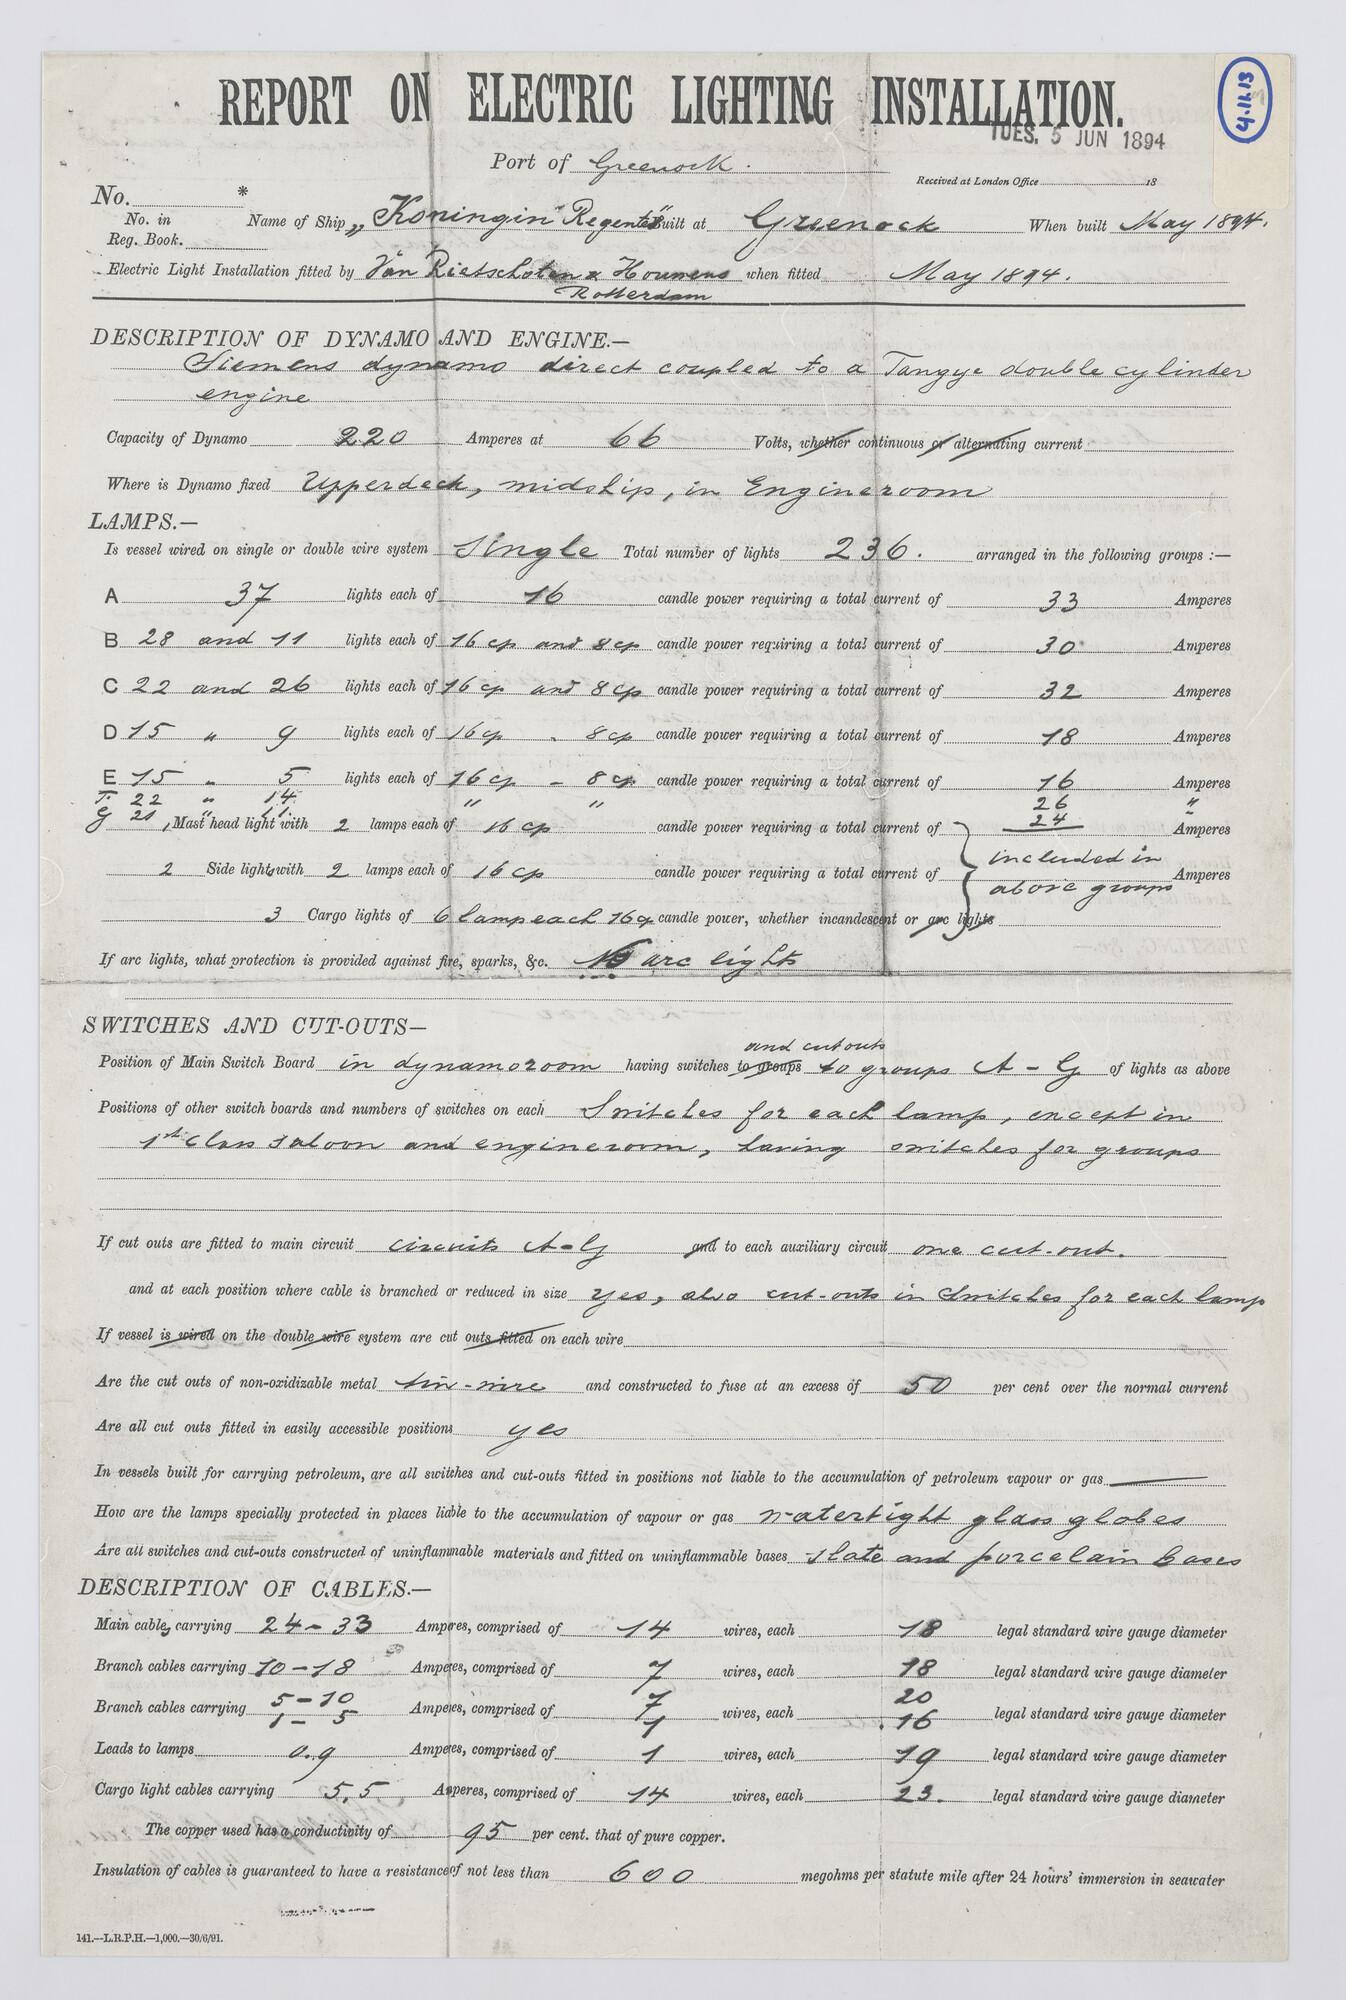 REPORT ON ELECTRIC LIGHTING INSTALLATION.
4.11.13
TUES. 5 JUN 1894
Port of Greenock.
Received at London Office 18
No. *
No. in Reg. Book. Name of Ship „Koningin Regentes" Built at Greenock When built May 1894.
Electric Light Installation fitted by Van Rietschoten & Houwens when fitted May 1894.
Rotterdam
DESCRIPTION OF DYNAMO AND ENGINE.—
Siemens dynamo direct coupled to a Tangye double cylinder
engine
Capacity of Dynamo 220 Amperes at 66 Volts, whether continuous or alternating current
Where is Dynamo fixed Upperdeck, midship, in Engineroom
LAMPS.—
Is vessel wired on single or double wire system Single Total number of lights 236. arranged in the following groups :—
A 37 lights each of 16 candle power requiring a total current of 33 Amperes
B 28 and 11 lights each of 16 cp and 8 cp candle power requiring a total current of 30 Amperes
C 22 and 26 lights each of 16 cp and 8 cp candle power requiring a total current of 32 Amperes
D 15 „ 9 lights each of 16 cp - 8 cp candle power requiring a total current of 18 Amperes
E 15 „ 5 lights each of 16 cp - 8 cp candle power requiring a total current of 16 Amperes
F. 22 „ 14 " " 26 "
G 21 " 11 24 "
1 Mast head light with 2 lamps each of 16 cp candle power requiring a total current of Amperes
2 Side lights with 2 lamps each of 16 cp candle power requiring a total current of included in above groups Amperes
3 Cargo lights of 6 lamp each 16 cp candle power, whether incandescent or arc lights
If arc lights, what protection is provided against fire, sparks, &c. No arc lights
SWITCHES AND CUT-OUTS—
and cutouts
Position of Main Switch Board in dynamoroom having switches to groups to groups A - G of lights as above
Positions of other switch boards and numbers of switches on each Switches for each lamp, except in
1st class saloon and engineroom, having switches for groups
If cut outs are fitted to main circuit circuits A-G and to each auxiliary circuit one cut-out.
and at each position where cable is branched or reduced in size yes, also cut-outs in switches for each lamp
If vessel is wired on the double wire system are cut outs fitted on each wire
Are the cut outs of non-oxidizable metal tin-wire and constructed to fuse at an excess of 50 per cent over the normal current
Are all cut outs fitted in easily accessible positions yes
In vessels built for carrying petroleum, are all switches and cut-outs fitted in positions not liable to the accumulation of petroleum vapour or gas —
How are the lamps specially protected in places liable to the accumulation of vapour or gas watertight glass globes
Are all switches and cut-outs constructed of uninflammable materials and fitted on uninflammable bases slate and porcelain bases
DESCRIPTION OF CABLES.—
Main cables carrying 24 - 33 Amperes, comprised of 14 wires, each 18 legal standard wire gauge diameter
Branch cables carrying 10 - 18 Amperes, comprised of 7 wires, each 18 legal standard wire gauge diameter
5 - 10 7 20
Branch cables carrying 1 - 5 Amperes, comprised of 1 wires, each 16 legal standard wire gauge diameter
Leads to lamps 0.9 Amperes, comprised of 1 wires, each 19 legal standard wire gauge diameter
Cargo light cables carrying 5,5 Amperes, comprised of 14 wires, each 23. legal standard wire gauge diameter
The copper used has a conductivity of 95 per cent. that of pure copper.
Insulation of cables is guaranteed to have a resistance of not less than 600 megohms per statute mile after 24 hours' immersion in seawater
141.—L.R.P.H.—1,000.—30/6/91.